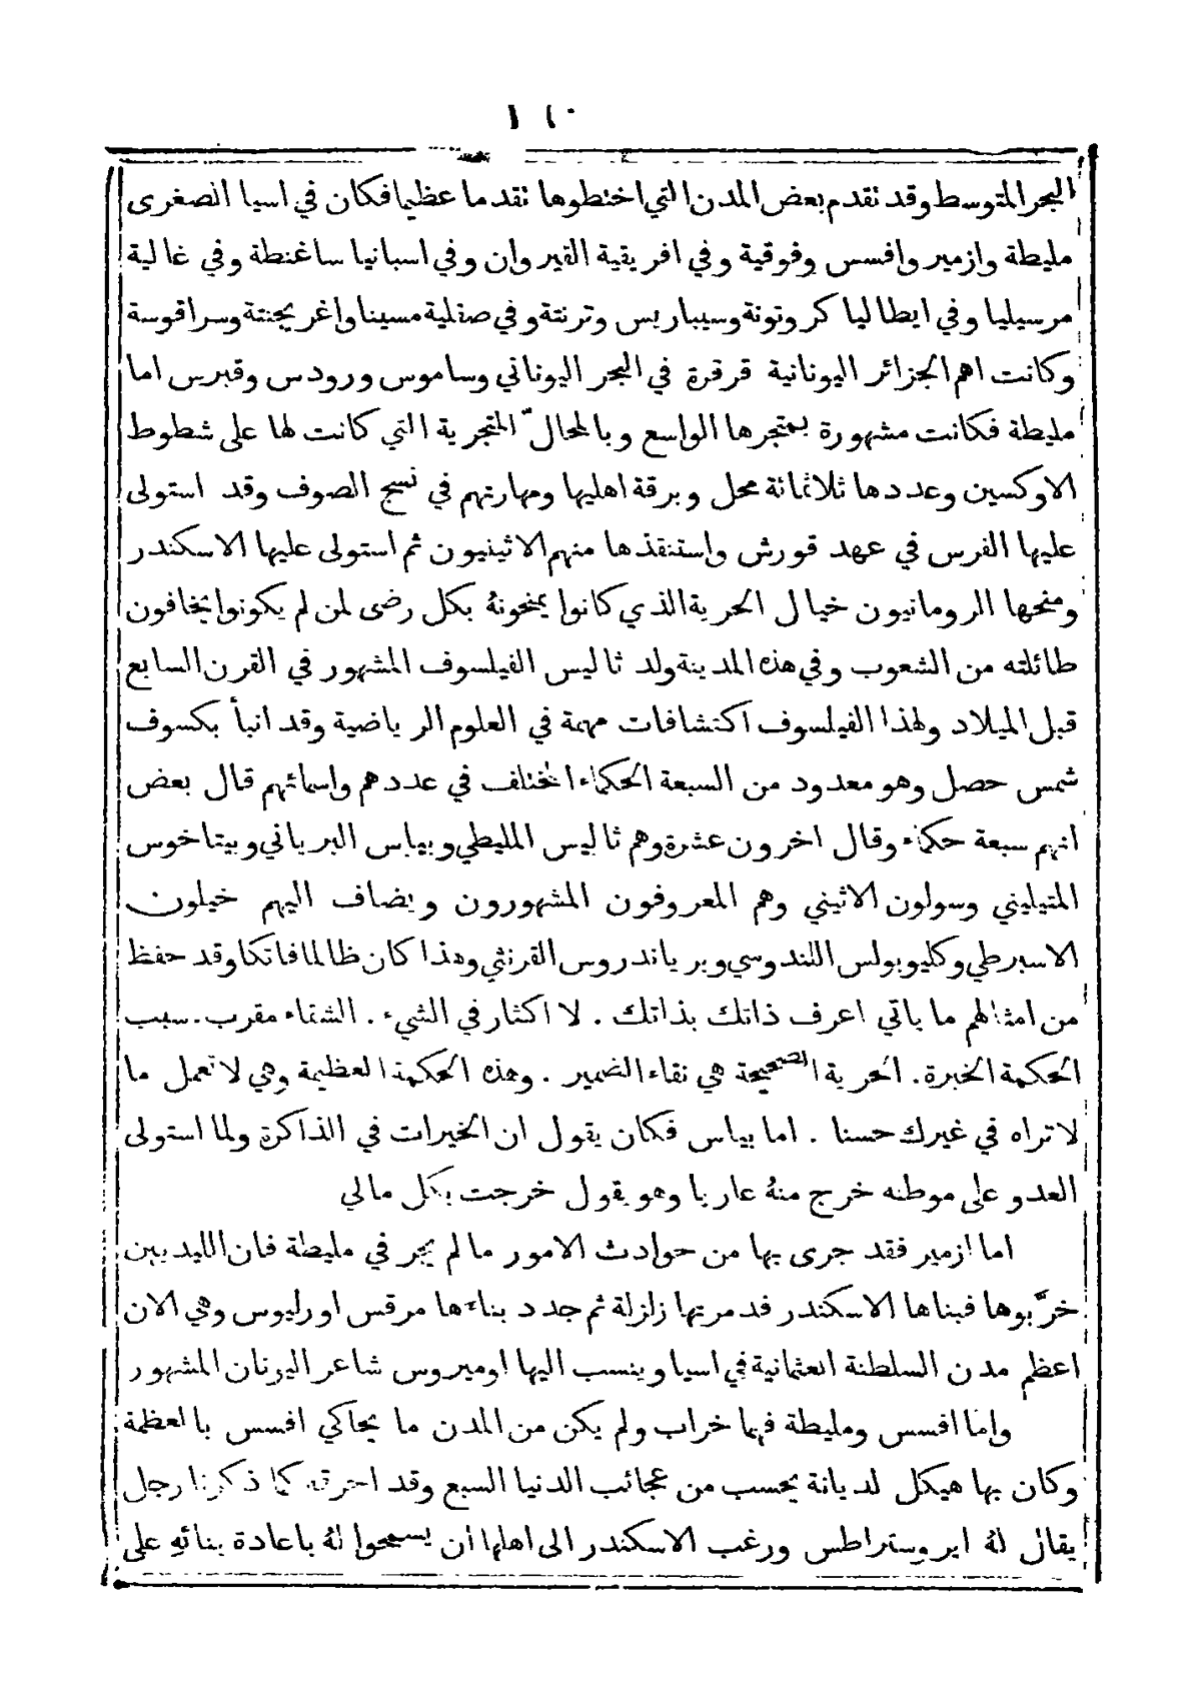 البحر المتوسط وقد تقدم بعض المدن التي اختطوها تقدما عظيما فكان في اسيا الصغرى
مليطة وازمير وافسس وفوقية وفي افريقية القيروان وفي اسبانيا ساغنطة وفي غالية
مرسيليا وفي ايطاليا كروتونة وسيباريس وترنتة وفي صقلية مسينا واغريجنتة وسراقوسة
وكانت اهم الجزائر اليونانية قرقرة في البحر اليوناني وساموس ورودس وقبرس اما
مليطة فكانت مشهورة بمتجرها الواسع وبالمحالّ المتجرية التي كانت لها على شطوط
الاوكسين وعددها ثلاثمائة محل وبرقة اهليها ومهارتهم في نسج الصوف وقد استولى
عليها الفرس في عهد قورش واستنقذها منهم الاثينيون ثم استولى عليها الاسكندر
ومنحها الرومانيون خيال الحرية الذي كانوا يمنحونهُ بكل رضى لمن لم يكونوا يخافون
طائلته من الشعوب وفي هذه المدينة ولد ثاليس الفيلسوف المشهور في القرن السابع
قبل الميلاد ولهذا الفيلسوف اكتشافات مهمة في العلوم الرياضية وقد انبأ بكسوف
شمس حصل وهو معدود من السبعة الحكماء المختلف في عددهم واسمائهم قال بعض
انهم سبعة حكماء وقال اخرون عشرة وهم ثاليس المليطي وبياس البرياني وبيتاخوس
المتيليني وسولون الاثيني وهم المعروفون المشهورون ويضاف اليهم خيلون
الاسبرطي وكليوبولس اللندوسي وبرياندروس القرنثي وهذا كان ظالما فاتكا وقد حفظ
من امثالهم ما ياتي اعرف ذاتك بذاتك . لا اكثار في الشيء . الشقاء مقرب . سبب
الحكمة الخبرة . الحرية الصحيحة هي نقاء الضمير . وهذه الحكمة العظيمة وهي لا تعمل ما
لا تراه في غيرك حسنا . اما بياس فكان يقول ان الخيرات في الذاكرة ولما استولى
العدو على موطنه خرج منهُ عاريا وهو يقول خرجت بكل مالي
اما ازمير فقد جرى بها من حوادث الامور ما لم يجر في مليطة فان الليديين
خرّبوها فبناها الاسكندر فدمرتها زلزلة ثم جدد بناءها مرقس اورليوس وهي الان
اعظم مدن السلطنة العثمانية في اسيا وينسب اليها اوميروس شاعر اليونان المشهور
واما افسس ومليطة فهما خراب ولم يكن من المدن ما يحاكي افسس بالعظمة
وكان بها هيكل لديانة يحسب من عجائب الدنيا السبع وقد احرقه كما ذكرنا رجل
يقال لهُ ايروستراطس ورغب الاسكندر الى اهلها ان يسمحوا لهُ باعادة بنائهِ على